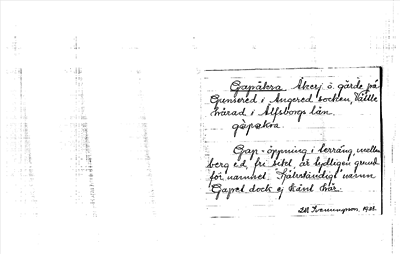 Gapåkra Åker o. gärde på
Gunnered i Angered socken, Vättle
härad i Älfsborgs län.
gapakra
Gap = öppning i terräng, mellan
berg e.d., fri sikt, är tydligen grund
för namnet. Självständigt namn
Gapet dock ej känt här.